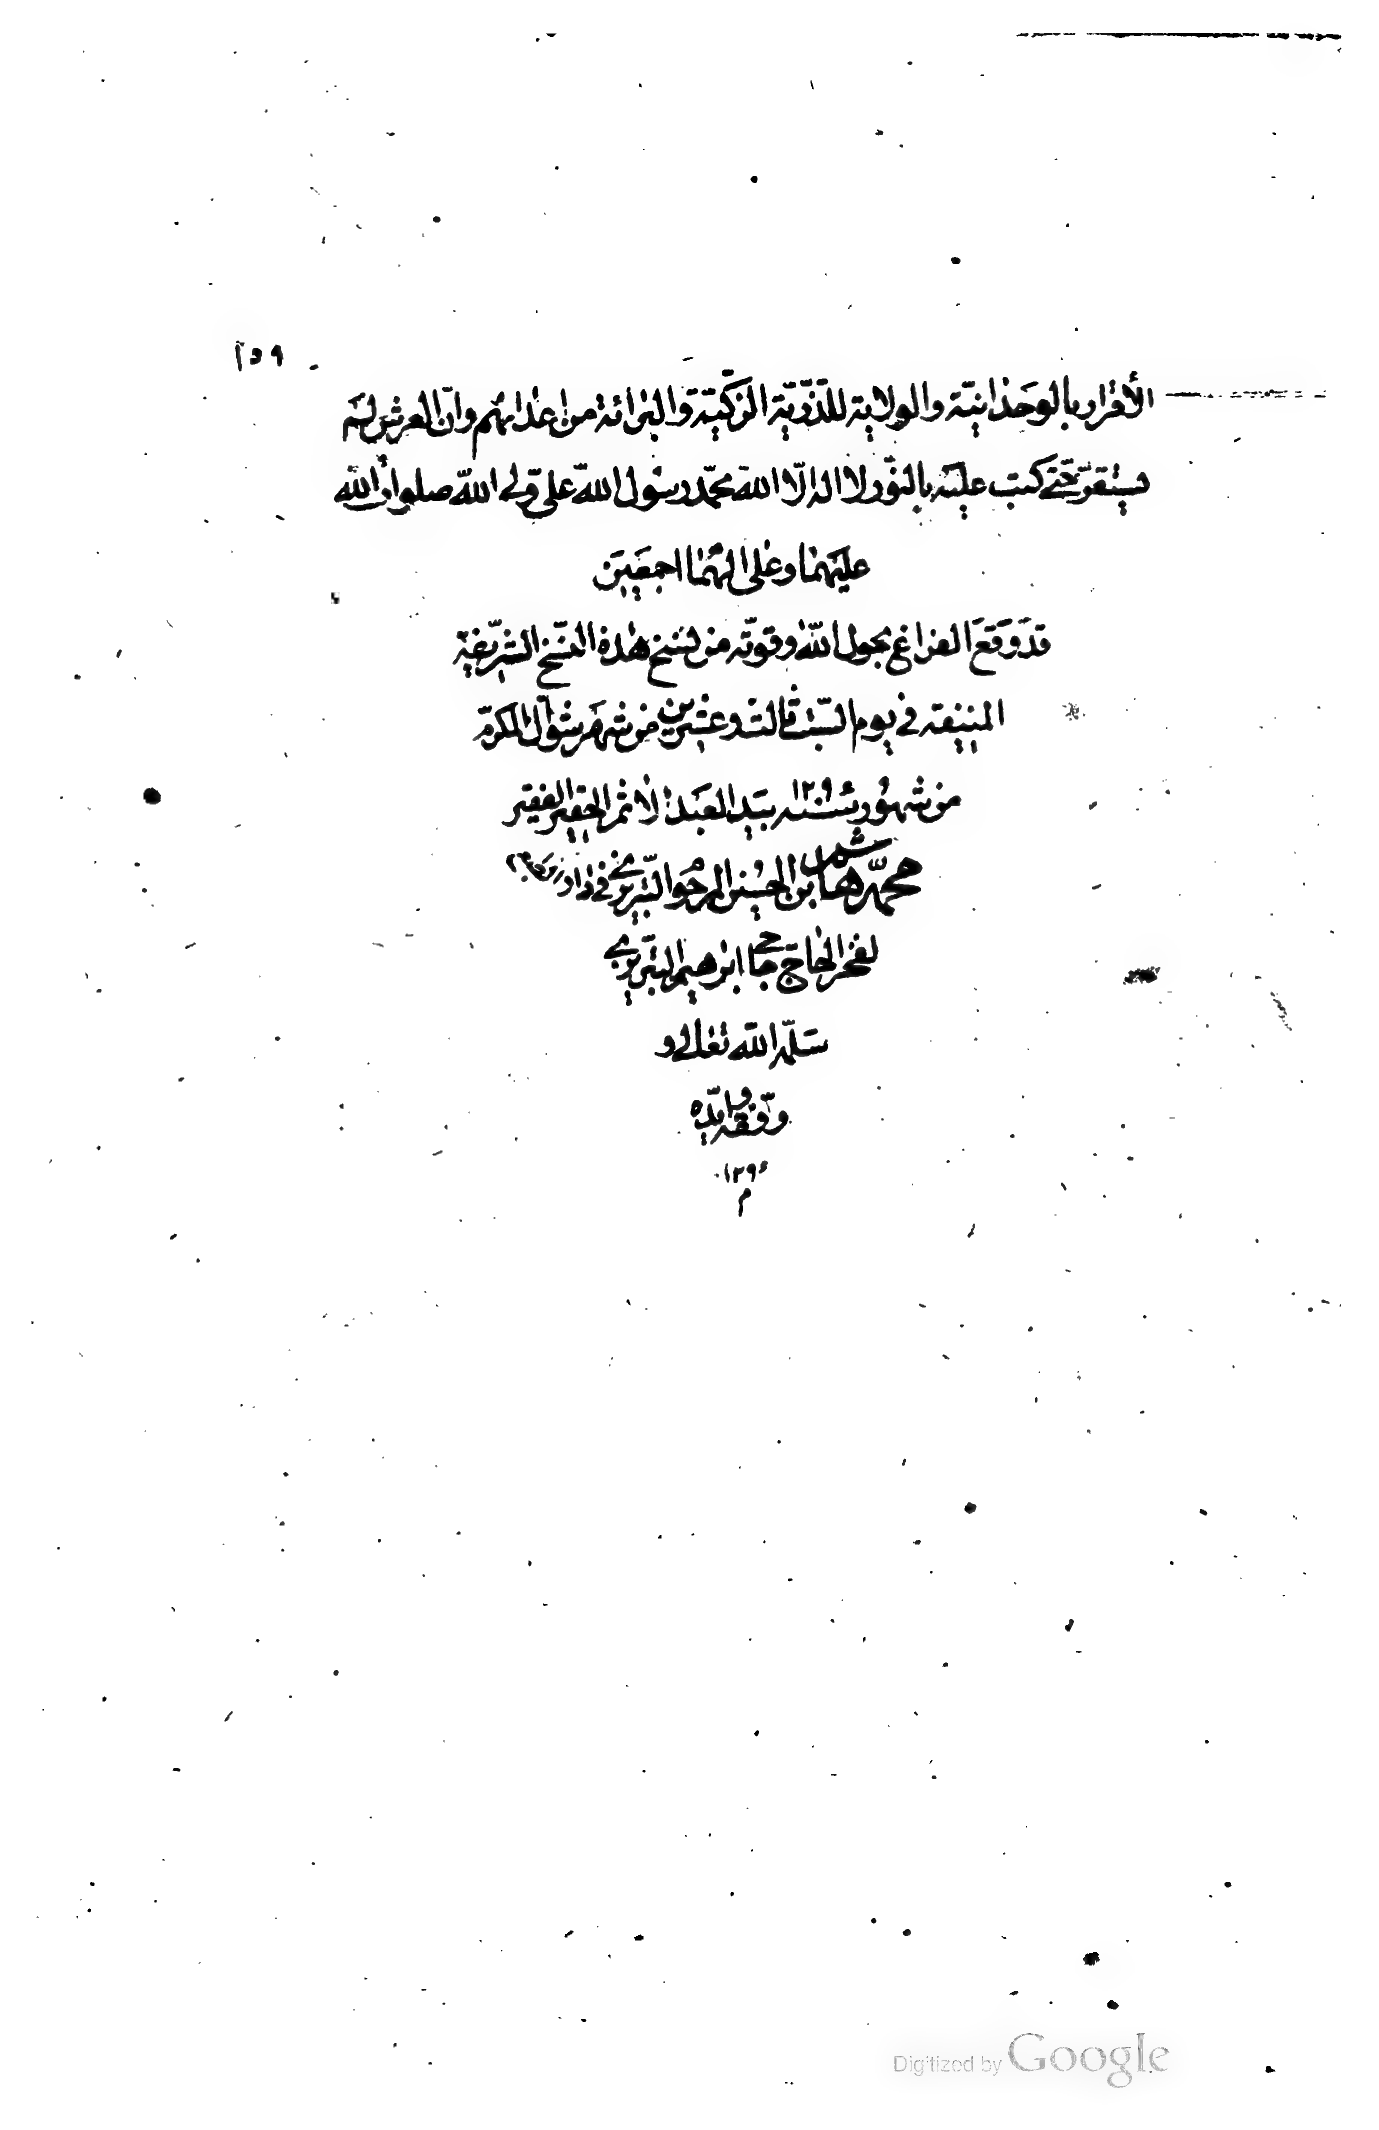 ١٥٩
الأقرار بالوحدانيّة والولاية للذّرّيّة الزّكيّة والبرائة من اعدائهم وانّ العرش لم
يستقرّ حتّى كتب عليه بالنّور لا اله الّا الله محمّد رسول الله علىّ ولى الله صلوات الله
عليهما وعلى الهما اجمعين
قد وقع الفراغ بحول الله وقوّته من نسخ هذه النّسخ الشّريفة
المنيفة فى يوم السّبت ثالث وعشرين من شهر شوّال المكرّم
من شهور سنة ١٢٩٤ بيد العبد الأثم الحقير الفقير
محمّد هاشم بن الحسين التّبريزى فى
لفخر الحاجّ حاجى ابرهيم التّبريزى
سلّمه الله تعالى و
وفّقه وايّده
١٢٩٤
م
Digitized by Google